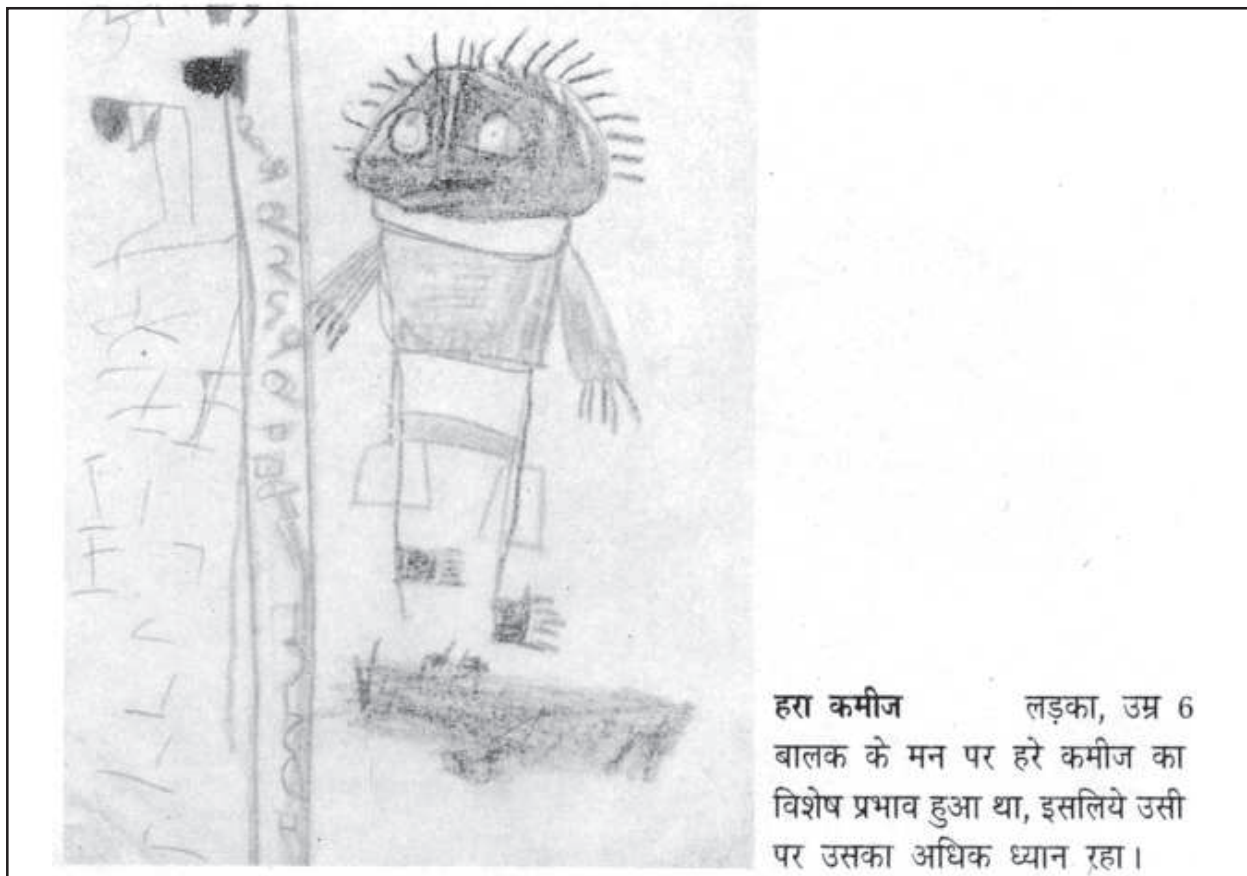 हरा कमीज लड़का, उम्र 6
बालक के मन पर हरे कमीज का
विशेष प्रभाव हुआ था, इसलिये उसी
पर उसका अधिक ध्यान रहा।